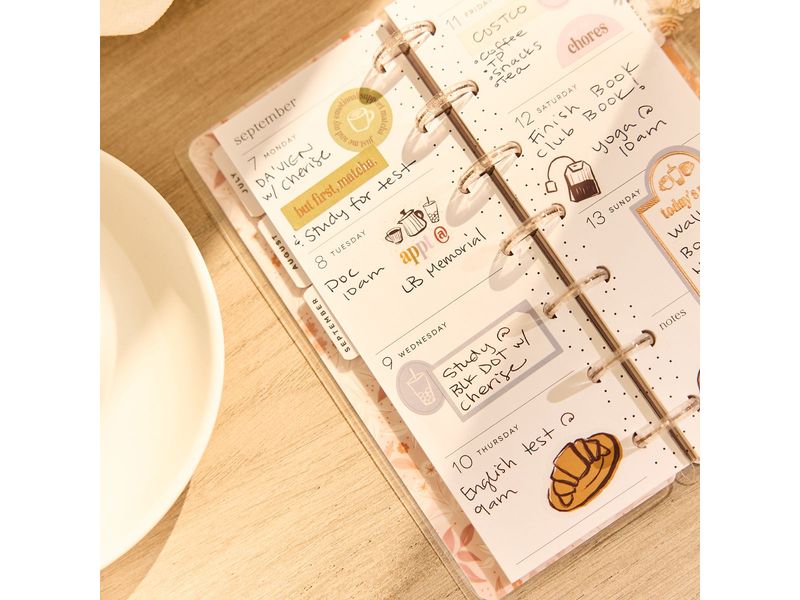 september
7 MONDAY
DA'VIEN
w/ Cherise
just me and my emotional support matcha
but first, matcha.
& Study for test
8 TUESDAY
Doc
10am
appt @
LB Memorial
9 WEDNESDAY
Study @
BLK DOT w/
Cherise
10 THURSDAY
English test @
9am
11 FRIDAY
COSTCO
• Coffee
• TP
• Snacks
• Tea
chores
12 SATURDAY
Finish BOOK
club BOOK!
yoga @
10am
13 SUNDAY
today's
notes
JULY
AUGUST
SEPTEMBER